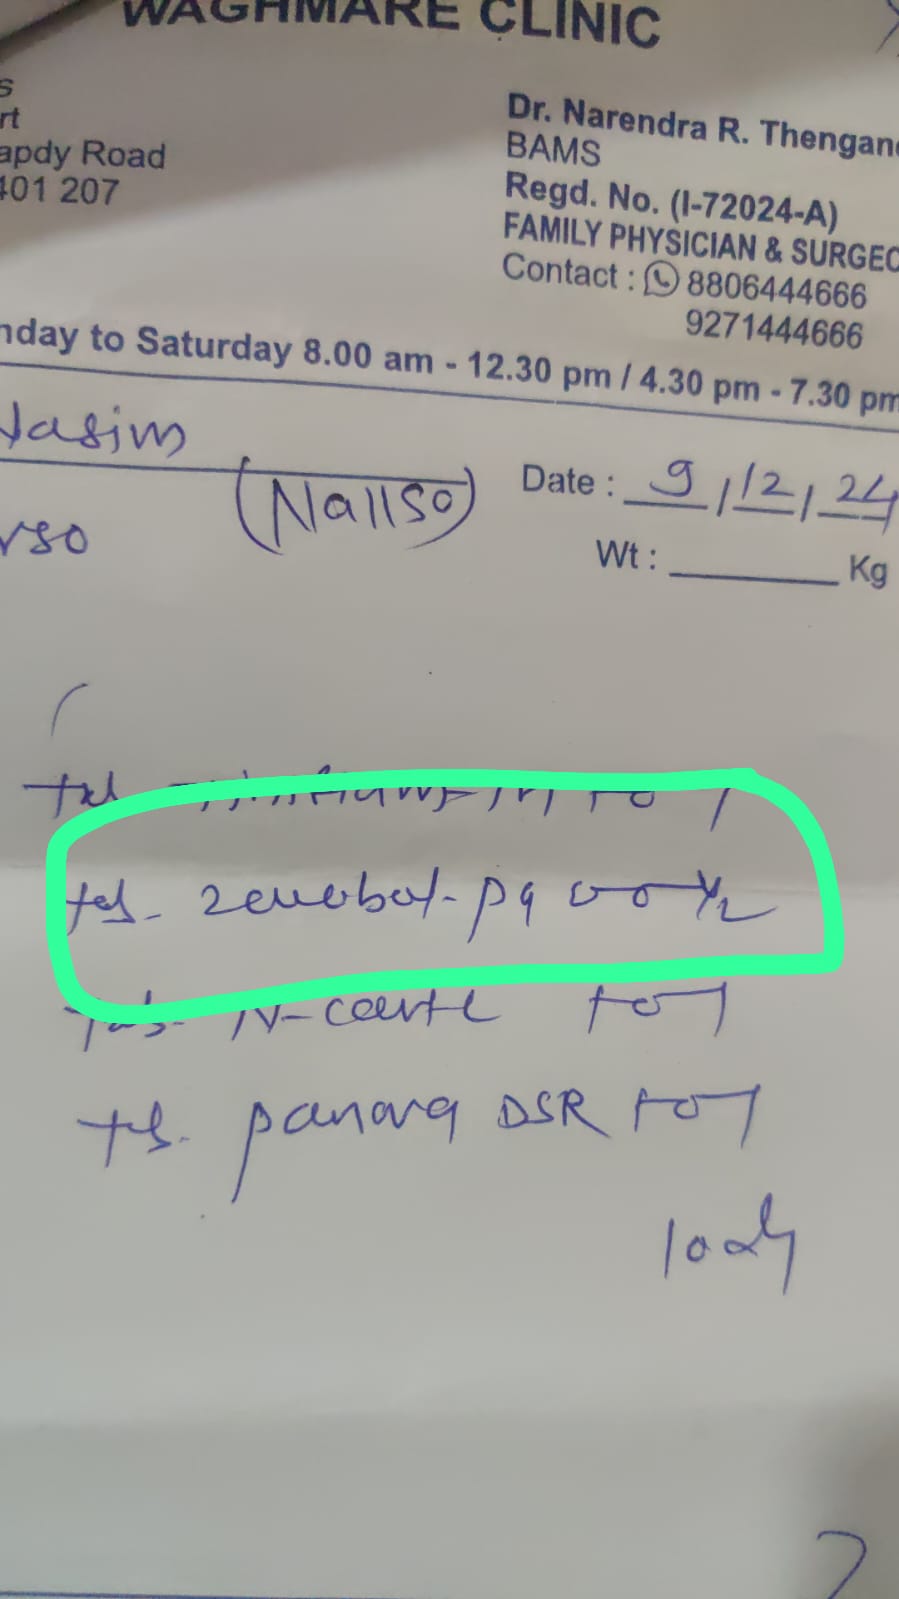 WAGHMARE CLINIC
s
rt
apdy Road
401 207
Dr. Narendra R. Thengan
BAMS
Regd. No. (I-72024-A)
FAMILY PHYSICIAN & SURGEO
Contact : 8806444666
9271444666
nday to Saturday 8.00 am - 12.30 pm / 4.30 pm - 7.30 pm
Nasim
(Nallso)
Date : 9/12/24
Wt : Kg
tab. 1 0 1
tab. -pg 0 0 1/2
tab. 1 0 1
tab. DSR 1 0 1
10 dy